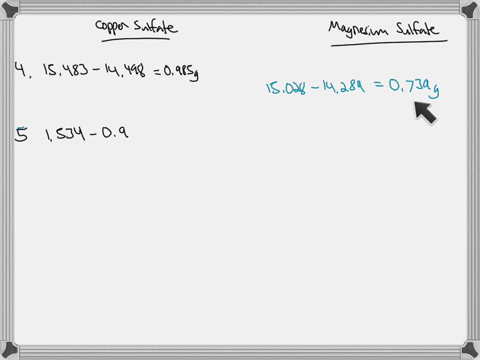 Copper Sulfate
Magnesium Sulfate
4. 15.483 - 14.498 = 0.985g
15.028 - 14.289 = 0.739g
5 1.534 - 0.9